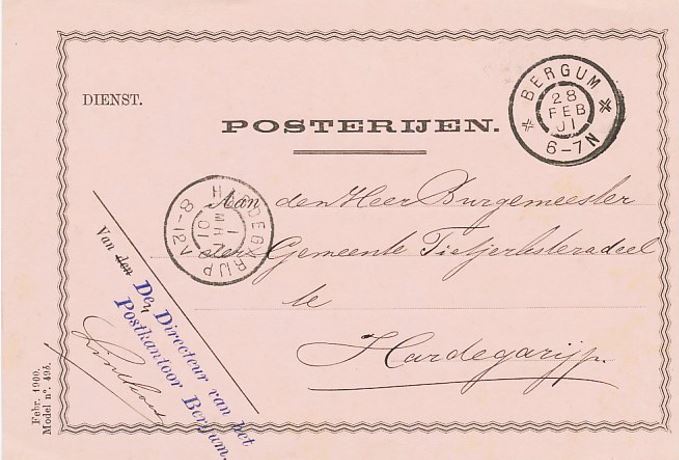 DIENST.
POSTERIJEN.
BERGUM
28
FEB
01
6-7N
HARDEGARIJP
1
MRT
01
8-12V
Aan den Heer Burgemeester
der Gemeente Tietjerksteradeel
te
Hardegarijp
Van den
Den Directeur van het
Postkantoor Bergum.
Febr. 1900.
Model nº. 495.